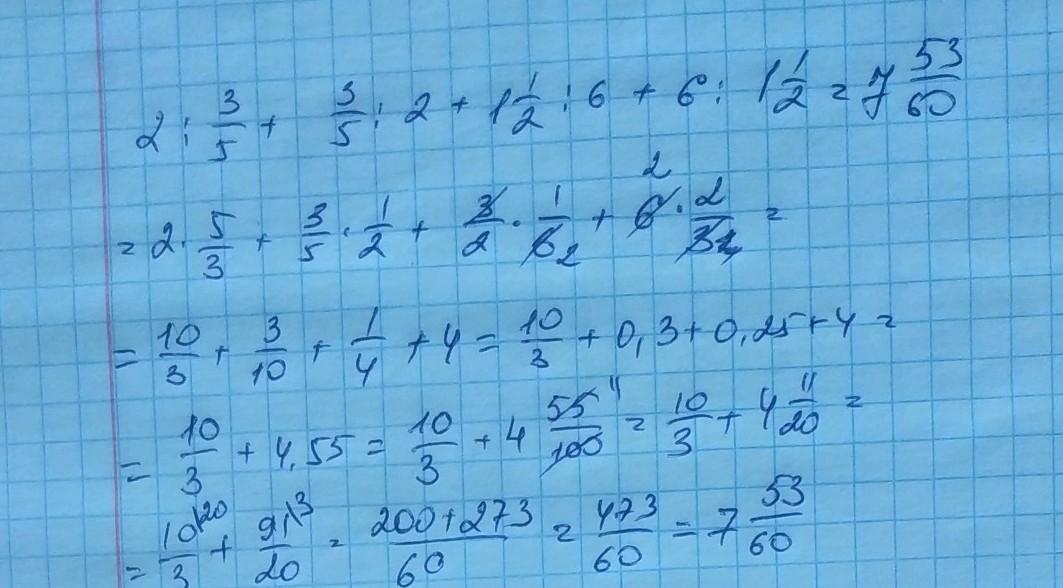 2 : 3/5 + 3/5 : 2 + 1 1/2 : 6 + 6 : 1 1/2 = 7 53/60
= 2 · 5/3 + 3/5 · 1/2 + 3/2 · 1/6 2 + 6 2 · 2/3 1 =
= 10/3 + 3/10 + 1/4 + 4 = 10/3 + 0,3 + 0,25 + 4 =
= 10/3 + 4,55 = 10/3 + 4 55/100 11 = 10/3 + 4 11/20 =
= 10/3 \20 + 91/20 \3 = 200+273/60 = 473/60 = 7 53/60